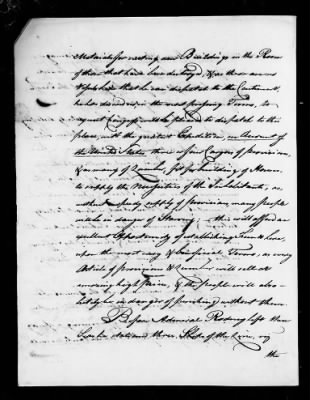 Materials for erecting new Buildings in the Room
of those that have been destroy'd, & as there are no
Vessels here that he can dispatch to the Continent,
he has desired me in the most pressing Terms, to
request Congress will be pleased to dispatch to this
place, with the greatest Expedition, on Account of
the United States three or four Cargoes of provisions,
& as many of Lumber, fit for building of Houses
to supply the Necessities of the Inhabitants, as
without a speedy supply of provisions many people
will be in danger of Starving, this will afford an
excellent Opportunity of establishing Funds here,
upon the most easy & beneficial Terms, as every
Article of provisions & Lumber will sell at
enormous high prices, & the people will absolutely
be in danger of perishing without them
Before Admiral Rodney left the
Leeward station three Ships of the Line, viz
the